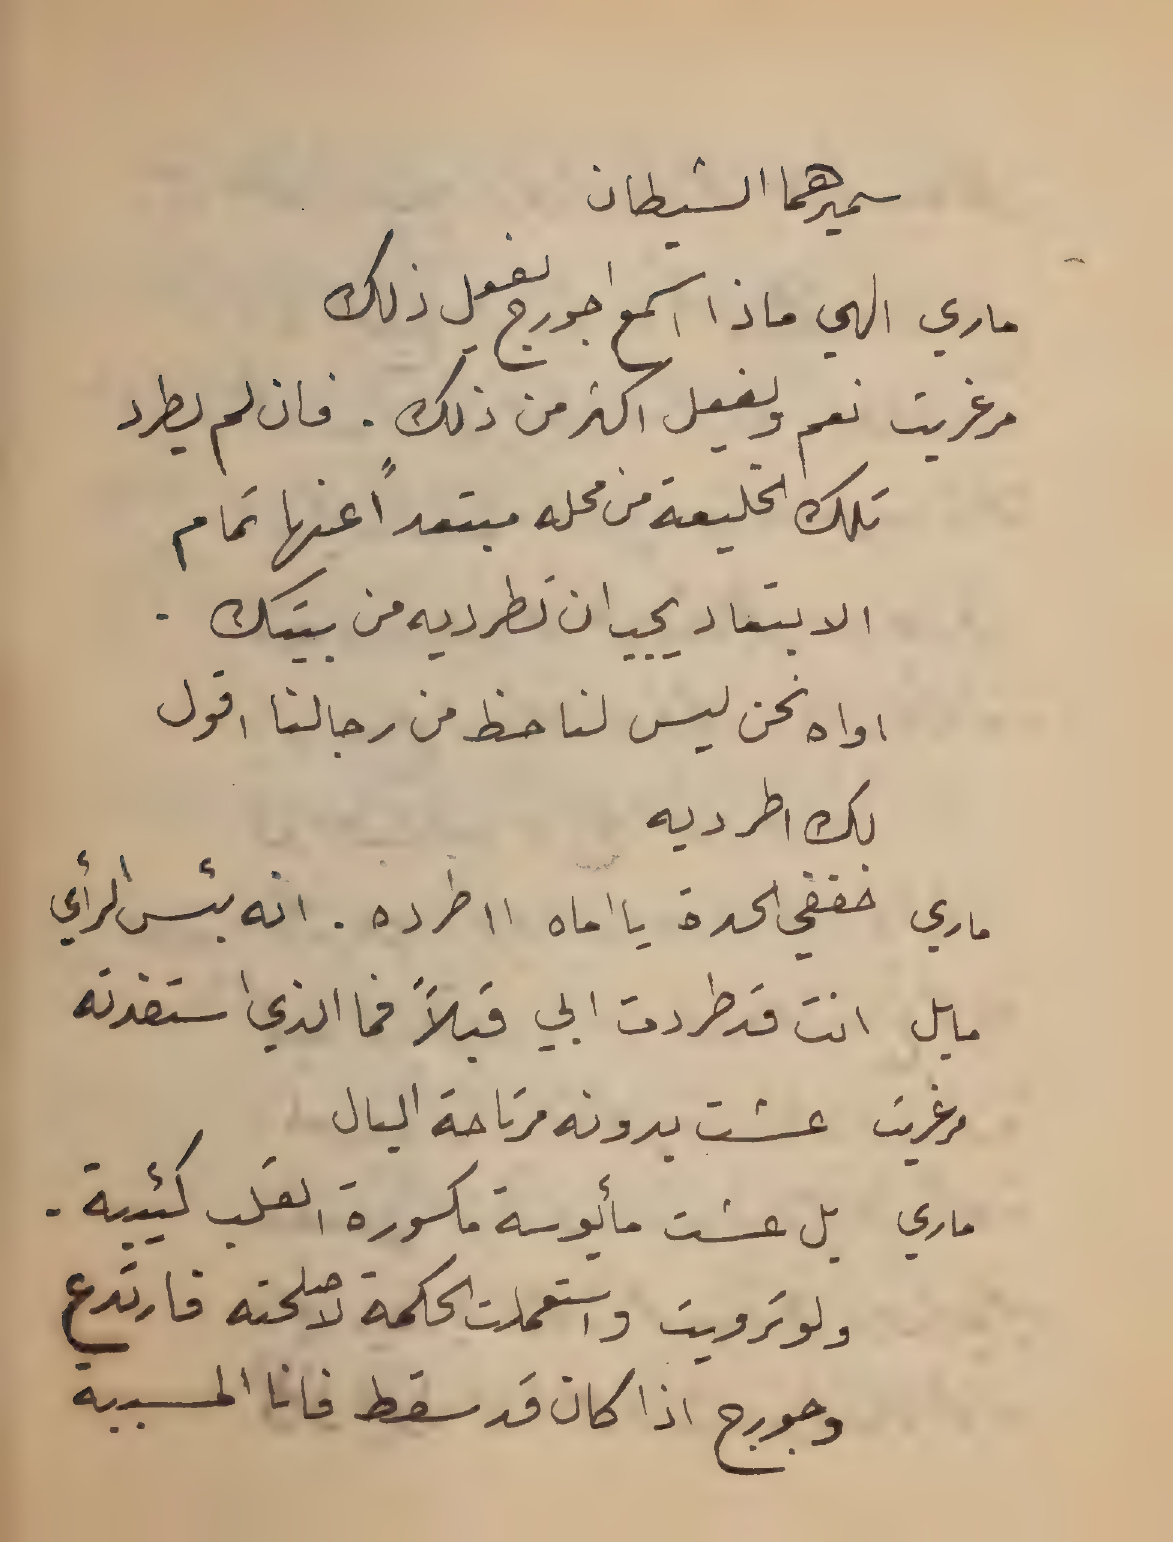 سميرهما الشيطان
ماري الهي ماذا اسمع اجورج يفعل ذلك
مرغريت نعم ويفعل اكثر من ذلك . فان لم يطرد
تلك الخليعة من محله مبتعداً عنها تمام
الابتعاد يجب ان تطرديه من بيتك .
اواه نحن ليس لنا حظ من رجالنا اقول
لك اطرديه
ماري خففي الحدة يا اماه ااطرده . انه بئس الرأي
مايل انت قد طردت ابي قبلاً فما الذي استفدته
مرغريت عشت بدونه مرتاحة البال
ماري بل عشت مأيوسة مكسورة القلب كئيبة .
ولو ترويت واستعملت الحكمة لاصلحته فارتدع
وجورج اذا كان قد سقط فانا المسببة